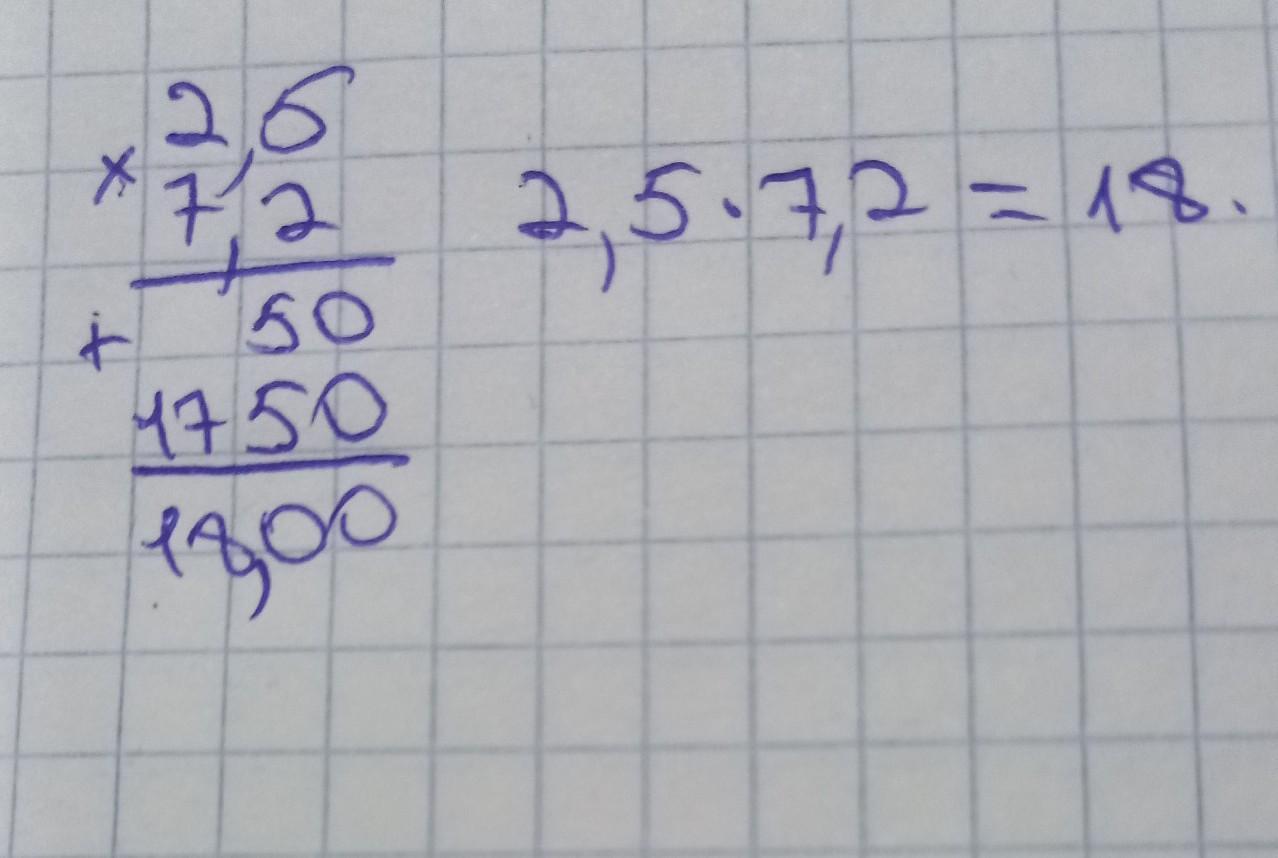 2,5
× 7,2
+ 50
1750
18,00
2,5 · 7,2 = 18.